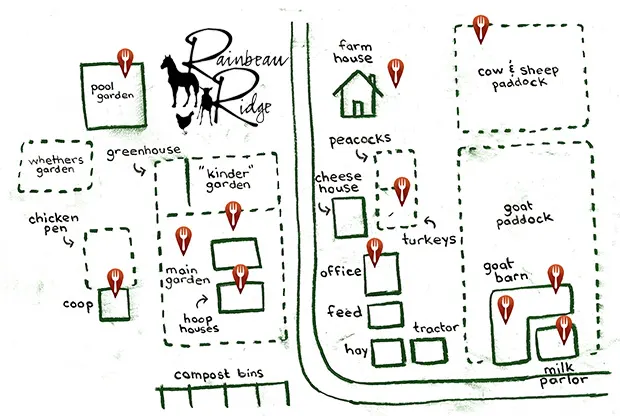 Rainbeau
Ridge
pool
garden
farm
house
cow & sheep
paddock
whethers
garden
greenhouse
"kinder"
garden
peacocks
cheese
house
turkeys
goat
paddock
chicken
pen
coop
main
garden
hoop
houses
office
feed
hay
tractor
goat
barn
milk
parlor
campost bins